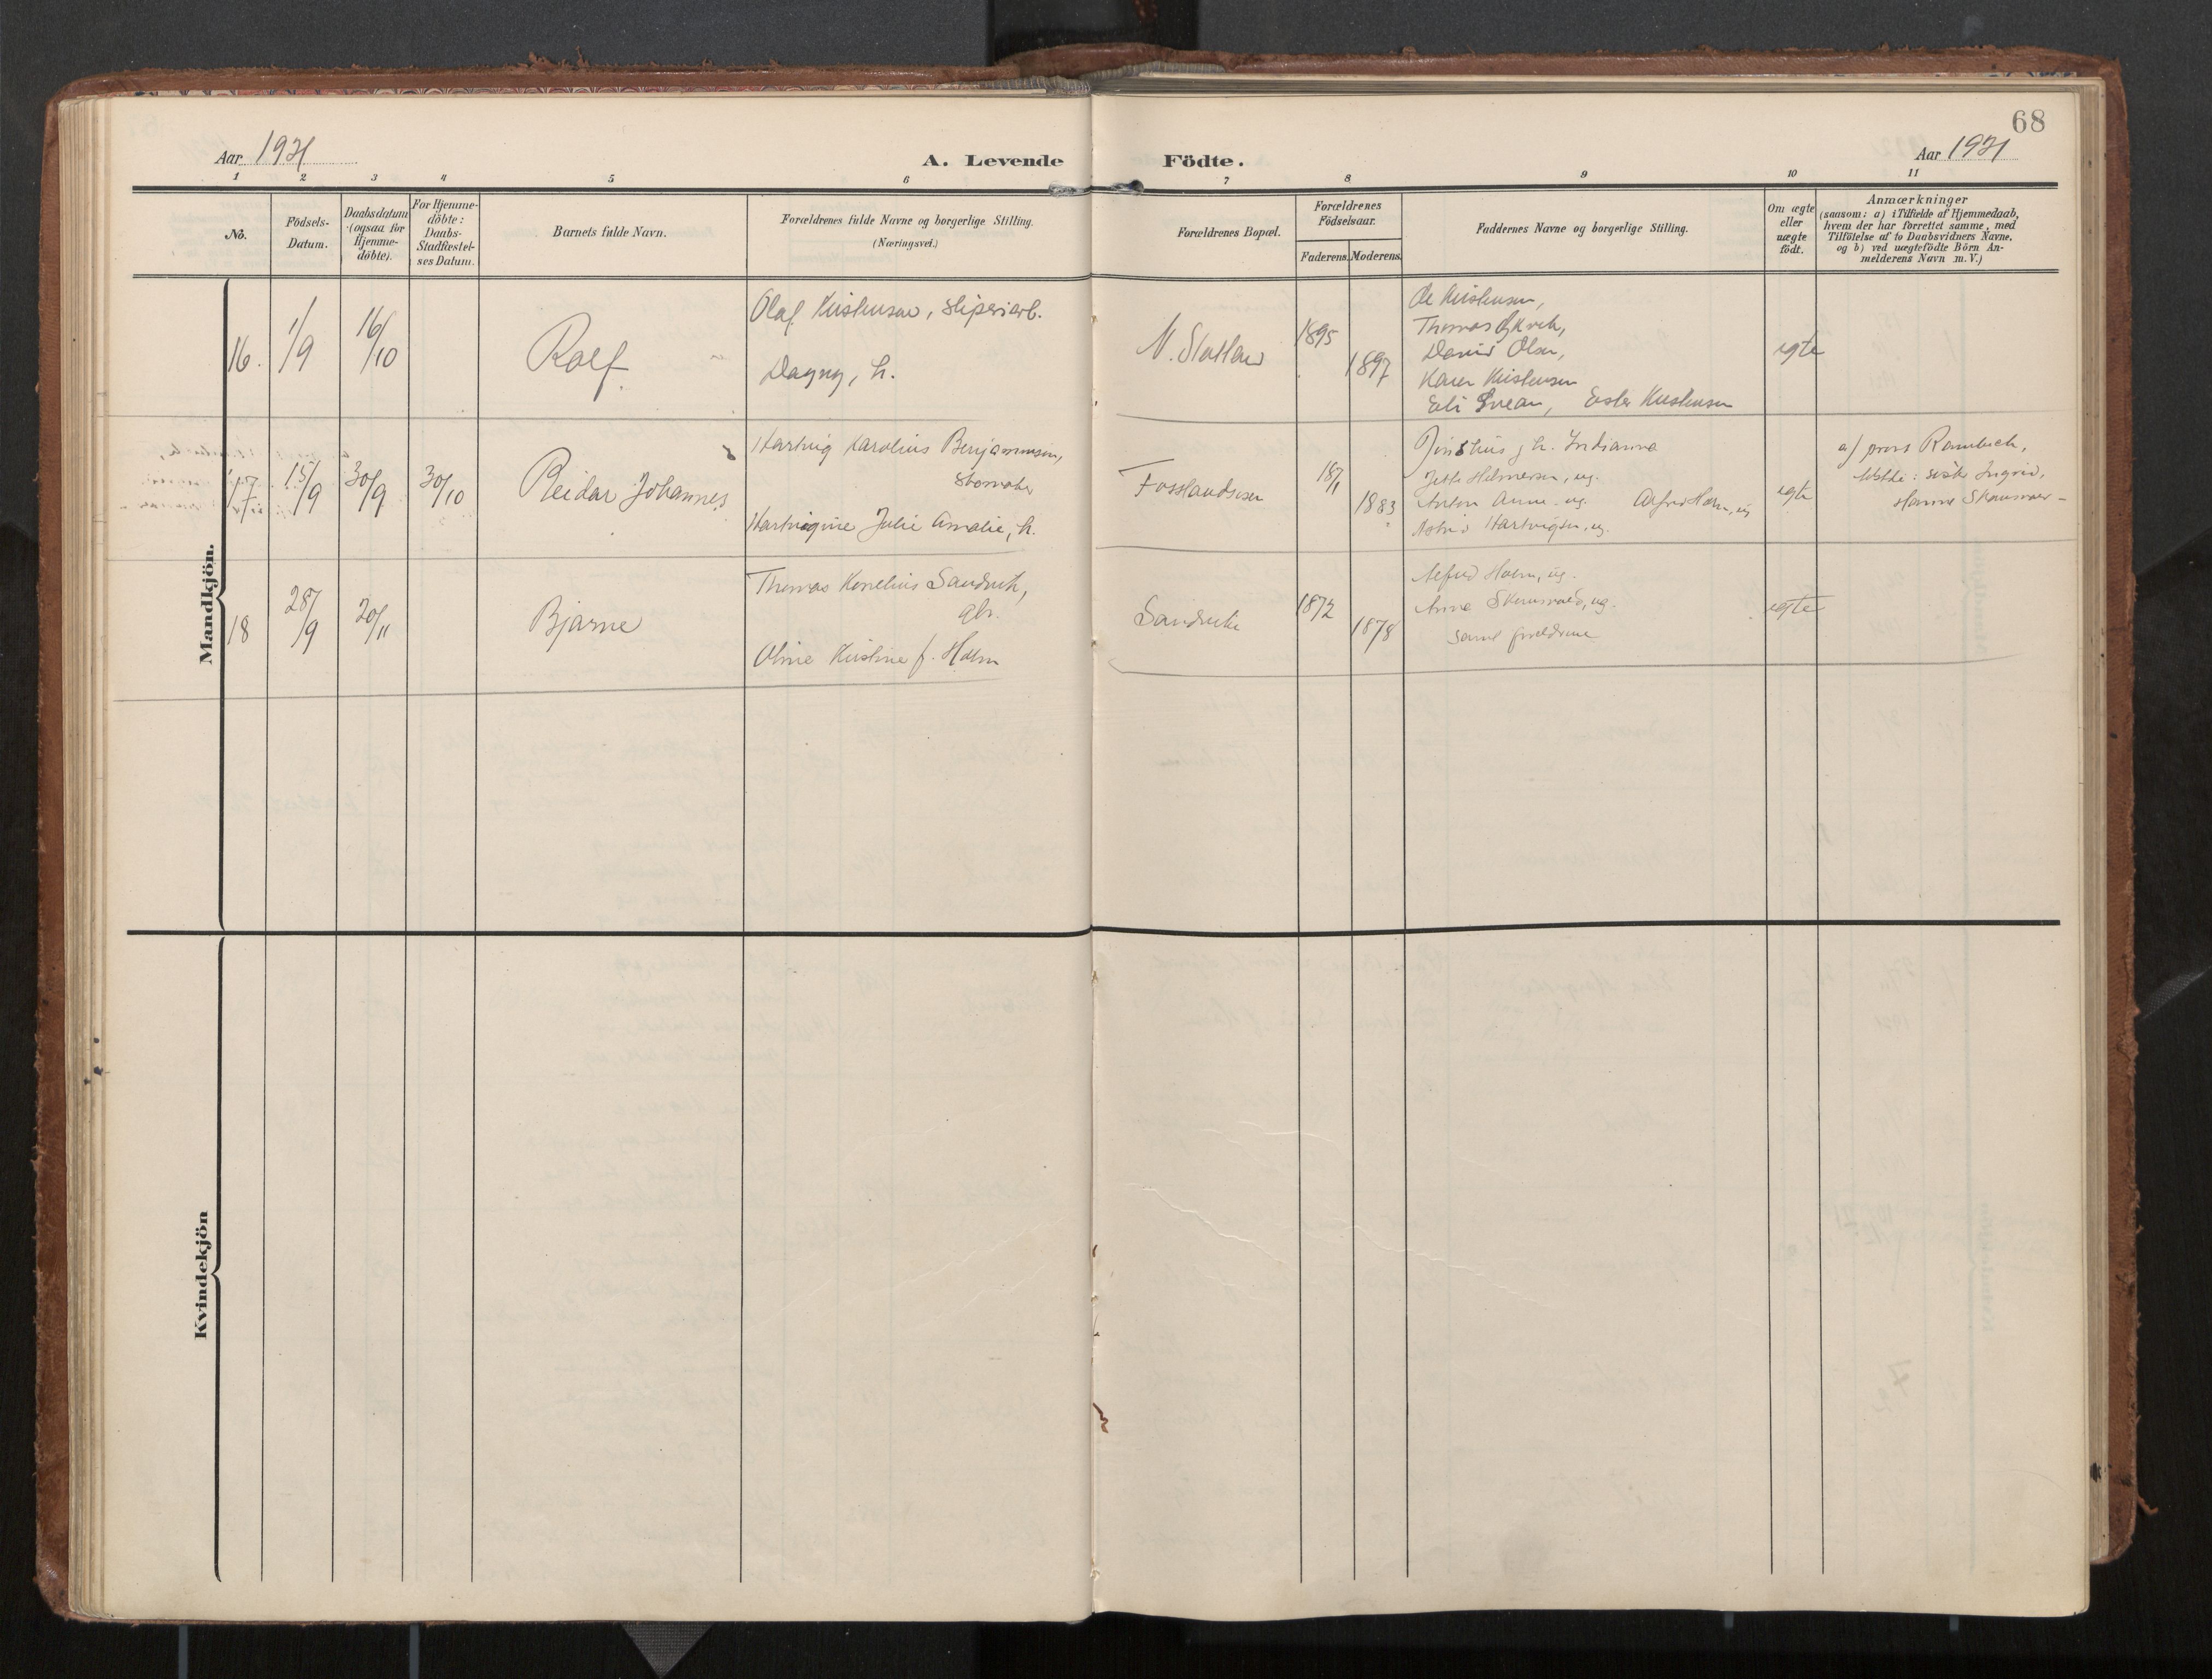 68
Aar 1921
A. Levende Födte.
Aar 1921
1 2 3 4 5 6 7 8 9 10 11
No.
Födsels-Datum.
Daabsdatum (ogsaa for Hjemme-döbte).
For Hjemme-döbte: Daabs-Stadfæstel-ses Datum.
Barnets fulde Navn.
Forældrenes fulde Navne og borgerlige Stilling.
(Næringsvei.)
Forældrenes Bopæl.
Forældrenes Födselsaar.
Faderens. Moderens.
Faddernes Navne og borgerlige Stilling.
Om ægte eller uægte födt.
Anmærkninger
(saasom: a) i Tilfælde af Hjemmedaab,
hvem der har forrettet samme, med
Tilföielse af to Daabsvidners Navne,
og b) ved uægtefödte Börn An-
melderens Navn m. V.)
Mandkjön.
16. 1/9 16/10
Rolf
Olaf Kristensen, sliperiarb.
Dagny, h.
1895
1897
Ole Kristensen,
Thomas
David Olsen,
Karen Kristensen
Eli Svean, Ester Kristensen
egte
17 15/9 30/9 30/10
Reidar Johannes
Hartvig Karolius Benjaminsen,
skomaker
Hartvigine Julie Amalie, h.
Fosslandsosen
1883
h. Indianna
Hilmersen, ug.
Anton Anne ug. Alfred Holm, ug
Astrid Hartvigsen, ug.
egte
a) provst Rambech,
Ingrid,
Hanna
18 28/9 20/11
Bjarne
Thomas Kornelius Sandvik,
gbr.
Oline Kristine f. Holm
Sandvik
1872
1878
Alfred Holm, ug.
Anna ug.
samt foreldrene
egte
Kvindekjön